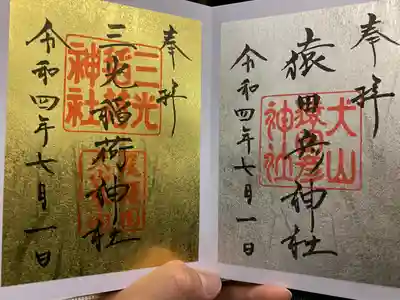 奉拝
猿田彦神社
犬山
猿田彦
神社
令和四年七月一日
奉拝
三光稲荷神社
三光
稲荷
神社
令和四年七月一日